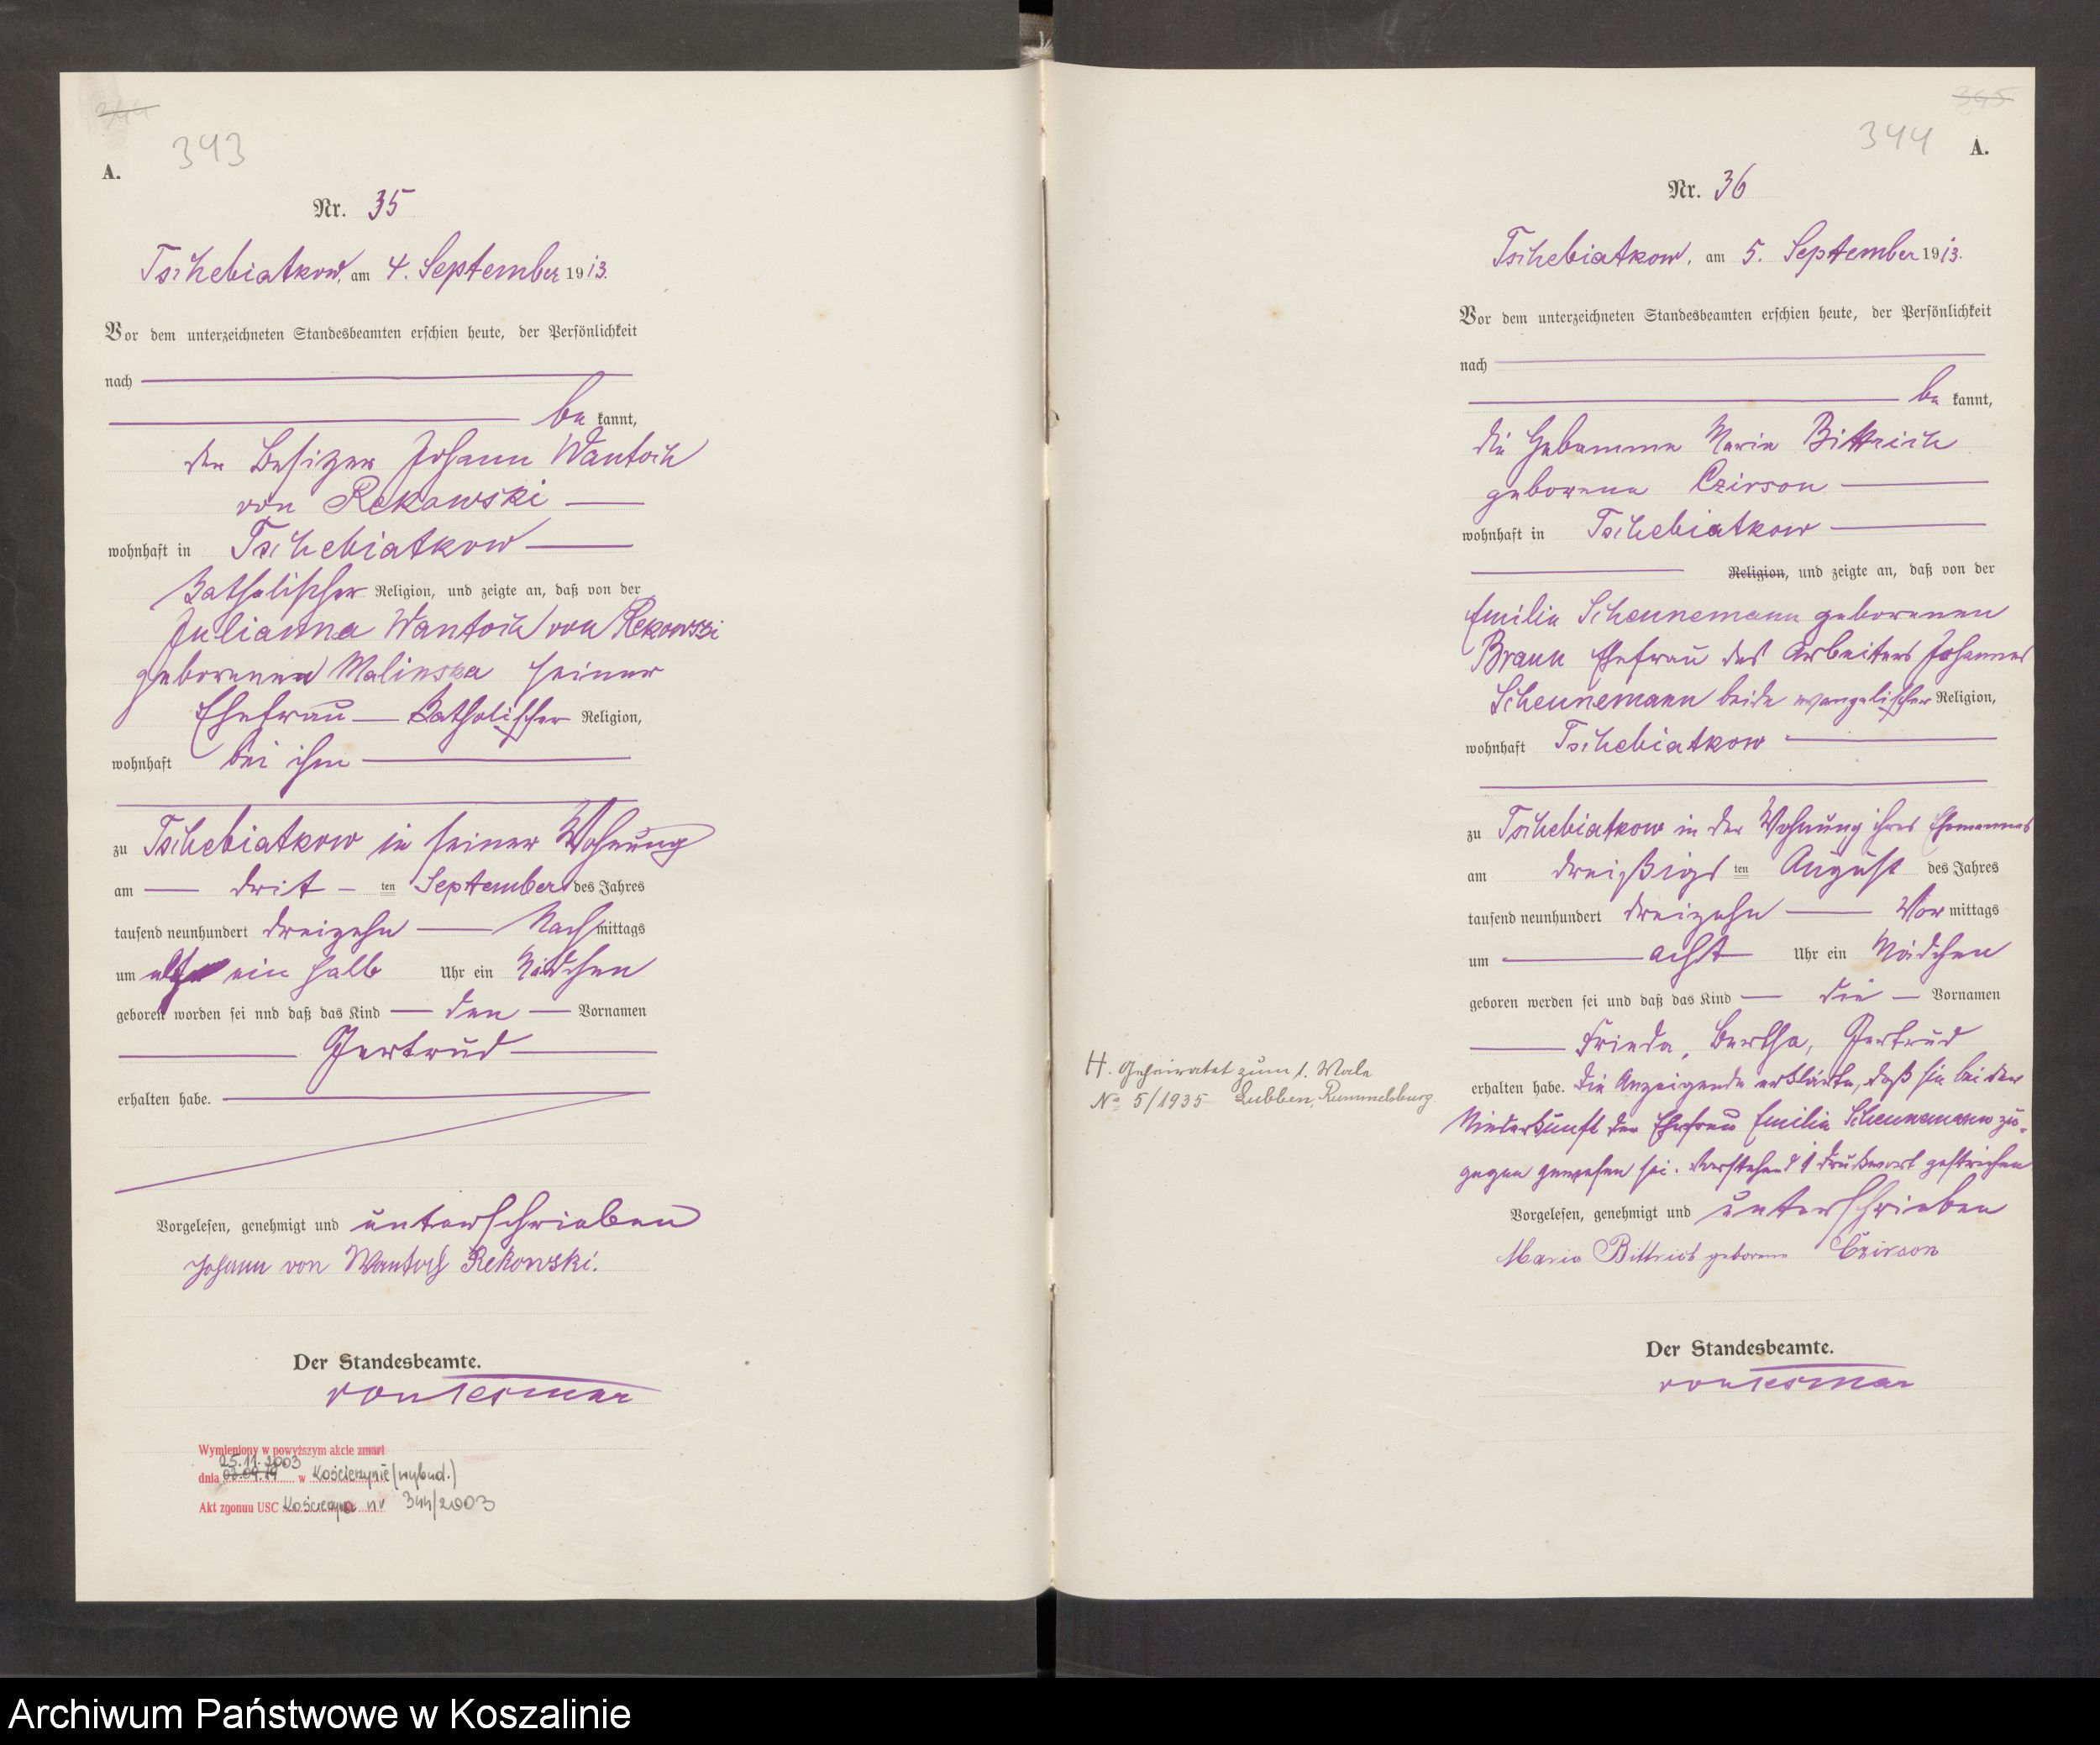 344
343
A.
Nr. 35
Tschebiatkow, am 4. September 1913.
Vor dem unterzeichneten Standesbeamten erschien heute, der Persönlichkeit
nach
be kannt,
der Besitzer Johann Wantoch
von Rekowski
wohnhaft in Tschebiatkow
Katholischer Religion, und zeigte an, daß von der
Julianna Wantoch von Rekowski
geborenen Malinska seiner
Ehefrau Katholischer Religion,
wohnhaft bei ihm
zu Tschebiatkow in seiner Wohnung
am drit ten September des Jahres
tausend neunhundert dreizehn Nach mittags
um ein halb Uhr ein Mädchen
geboren worden sei und daß das Kind den Vornamen
Gertrud
erhalten habe.
Vorgelesen, genehmigt und unterschrieben
Johann von Wantoch Rekowski.
Der Standesbeamte.
von Tesmar
Wymieniony w powyższym akcie zmarł
25.11.2003
dnia w Kościerzynie (wybud.)
Akt zgonuu USC Kościerzyna nr 344/2003
345
344
A.
Nr. 36
Tschebiatkow, am 5. September 1913.
Vor dem unterzeichneten Standesbeamten erschien heute, der Persönlichkeit
nach
be kannt,
die Hebamme Maria Bittrich
geborene Czirson
wohnhaft in Tschebiatkow
Religion, und zeigte an, daß von der
Emilie Scheunemann geborenen
Braun Ehefrau des Arbeiters Johannes
Scheunemann beide evangelischer Religion,
wohnhaft Tschebiatkow
zu Tschebiatkow in der Wohnung ihres Ehemannes
am dreißigs ten August des Jahres
tausend neunhundert dreizehn Vor mittags
um acht Uhr ein Mädchen
geboren werden sei und daß das Kind die Vornamen
Frieda, Bertha, Gertrud
erhalten habe. Die Anzeigende erklärte, daß sie bei der
Niederkunft der Ehefrau Emilie Scheunemann zu-
gegen gewesen sei. Vorstehend 1 Druckwort gestrichen
Vorgelesen, genehmigt und unterschrieben
Maria Bittrich geborene Czirson
Der Standesbeamte.
von Tesmar
H. Geheiratet zum 1. Male
No 5/1935 Lubben, Rummelsburg
Archiwum Państwowe w Koszalinie